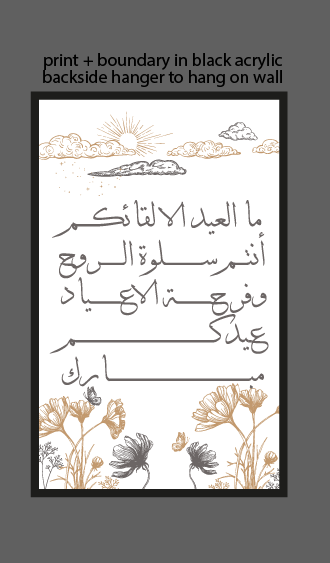 print + boundary in black acrylic
backside hanger to hang on wall
ما العيد الا لقائكم
أنتم سلوة الروح
وفرحة الاعياد
عيدكم
مبارك